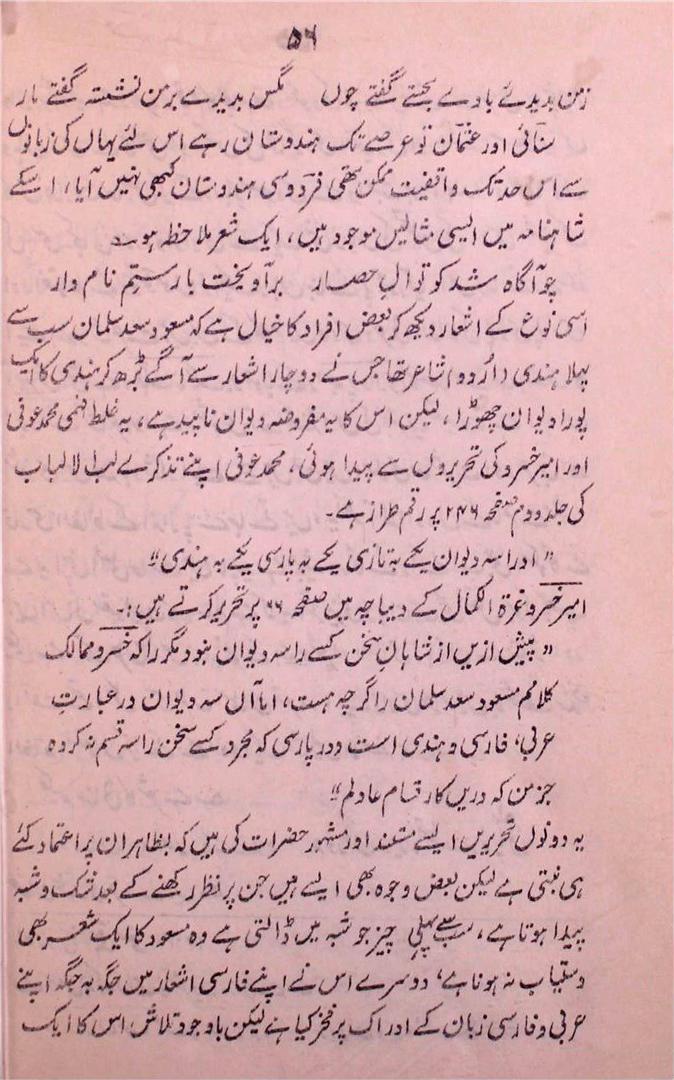 ۵۶
زمن بدیدئے بادے بجستے گفتے چوں مگس بدیدے برمن نشستہ گفتے مار
سنائی اور عثمان تو عرصے تک ہندوستان رہے اس لئے یہاں کی زبانوں
سے اس حد تک واقفیت ممکن تھی فردوسی ہندوستان کبھی نہیں آیا، اسکے
شاہنامہ میں ایسی مثالیں موجود ہیں، ایک شعر ملاحظہ ہو۔
چو آگاہ شد کوتوالِ حصار برآویخت بارستم نام وار
اسی نوع کے اشعار دیکھ کر بعض افراد کا خیال ہے کہ مسعود سعد سلمان سب سے
پہلا ہندی (اردو) شاعر تھا جس نے دوچار اشعار سے آگے بڑھ کر ہندی کا ایک
پورا دیوان چھوڑا، لیکن اس کا یہ مفروضہ دیوان ناپید ہے، یہ غلط فہمی محمد عوفی
اور امیر خسرو کی تحریروں سے پیدا ہوئی، محمد عوفی اپنے تذکرے لب لالباب
کی جلد دوم صفحہ ۲۴۶ پر رقم طراز ہے۔
"اوراسہ دیوان یکے بہ تازی یکے بہ پارسی یکے بہ ہندی"
امیر خسرو غرة الکمال کے دیباچہ میں صفحہ ۶۶ پر تحریر کرتے ہیں:۔
"پیش ازیں از شاہان سخن کسے راسہ دیوان نبود مگر راکہ خسرو ممالک
کلامم مسعود سعد سلمان را گرچہ ہست، اما آں سہ دیوان در عبارتِ
عربی، فارسی و ہندی است ودر پارسی کہ مجرد کسے سخن راسہ قسم نہ کردہ
جز من کہ دریں کار قسام عادلم"
یہ دونوں تحریریں ایسے مستند اور مشہور حضرات کی ہیں کہ بظاہر ان پر اعتماد کئے
ہی بنتی ہے لیکن بعض وجوہ بھی ایسے ہیں جن پر نظر رکھنے کے بعد شک وشبہ
پیدا ہوتا ہے، سب سے پہلی چیز جو شبہ میں ڈالتی ہے وہ مسعود کا ایک شعر بھی
دستیاب نہ ہونا ہے، دوسرے اس نے اپنے فارسی اشعار میں جگہ بہ جگہ اپنے
عربی و فارسی زبان کے ادراک پر فخر کیا ہے لیکن باوجود تلاش اس کا ایک